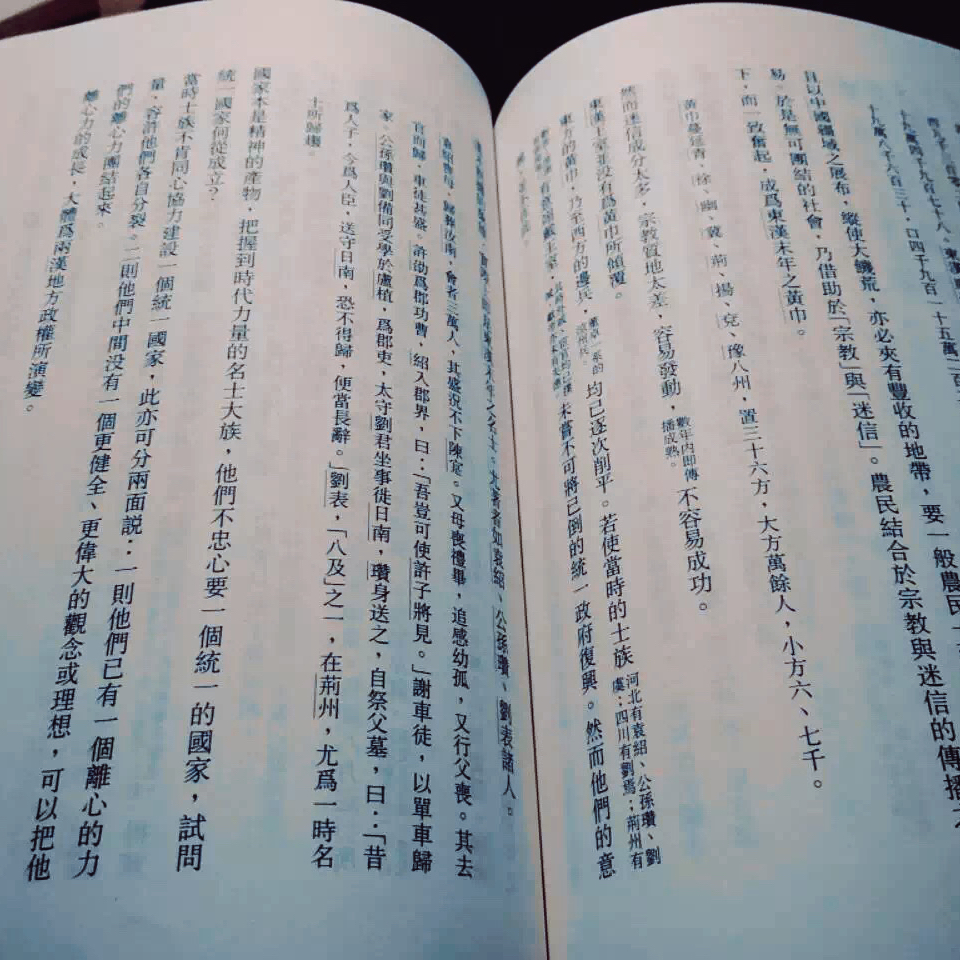 十九萬四千九百七十八。東漢
十九萬八千六百三十，口四千九百一十五萬
且以中國疆域之展布，縱使大饑荒，亦必夾有豐收的地帶，要一般農民
易。於是無可團結的社會，乃借助於「宗教」與「迷信」。農民結合於宗教與迷信的傳播
下，而一致奮起，成爲東漢末年之黃巾。
黃巾蔓延青、徐、幽、冀、荊、揚、兗、豫八州，置三十六方，大方萬餘人，小方六、七千。
然而迷信成分太多，宗教質地太差，容易發動，數年內即傳播成熟。不容易成功。
東漢王室並没有爲黃巾所傾覆。
東方的黃巾，乃至西方的邊兵，董卓一系的涼州兵。均已逐次削平。若使當時的士族河北有袁紹、公孫瓚、劉虞；四川有劉焉；荊州有
未嘗不可將已倒的統一政府復興。然而他們的意
之名士。尤著者如袁紹、公孫瓚、劉表諸人。
袁紹母，歸葬汝南，會者三萬人，其盛況不下陳寔。又母喪禮畢，追感幼孤，又行父喪。其去
官而歸，車徒甚盛。許劭爲郡功曹，紹入郡界，曰：「吾豈可使許子將見。」謝車徒，以單車歸
家。公孫瓚與劉備同受學於盧植，爲郡吏，太守劉君坐事徙日南，瓚身送之，自祭父墓，曰：「昔
爲人子，今爲人臣，送守日南，恐不得歸，便當長辭。」劉表，「八及」之一，在荊州，尤爲一時名
士所歸趨。
國家本是精神的產物，把握到時代力量的名士大族，他們不忠心要一個統一的國家，試問
統一國家何從成立？
當時士族不肯同心協力建設一個統一國家，此亦可分兩面説：一則他們已有一個離心的力
量，容許他們各自分裂。二則他們中間没有一個更健全、更偉大的觀念或理想，可以把他
們的離心力團結起來。
離心力的成長，大體爲兩漢地方政權所演變。